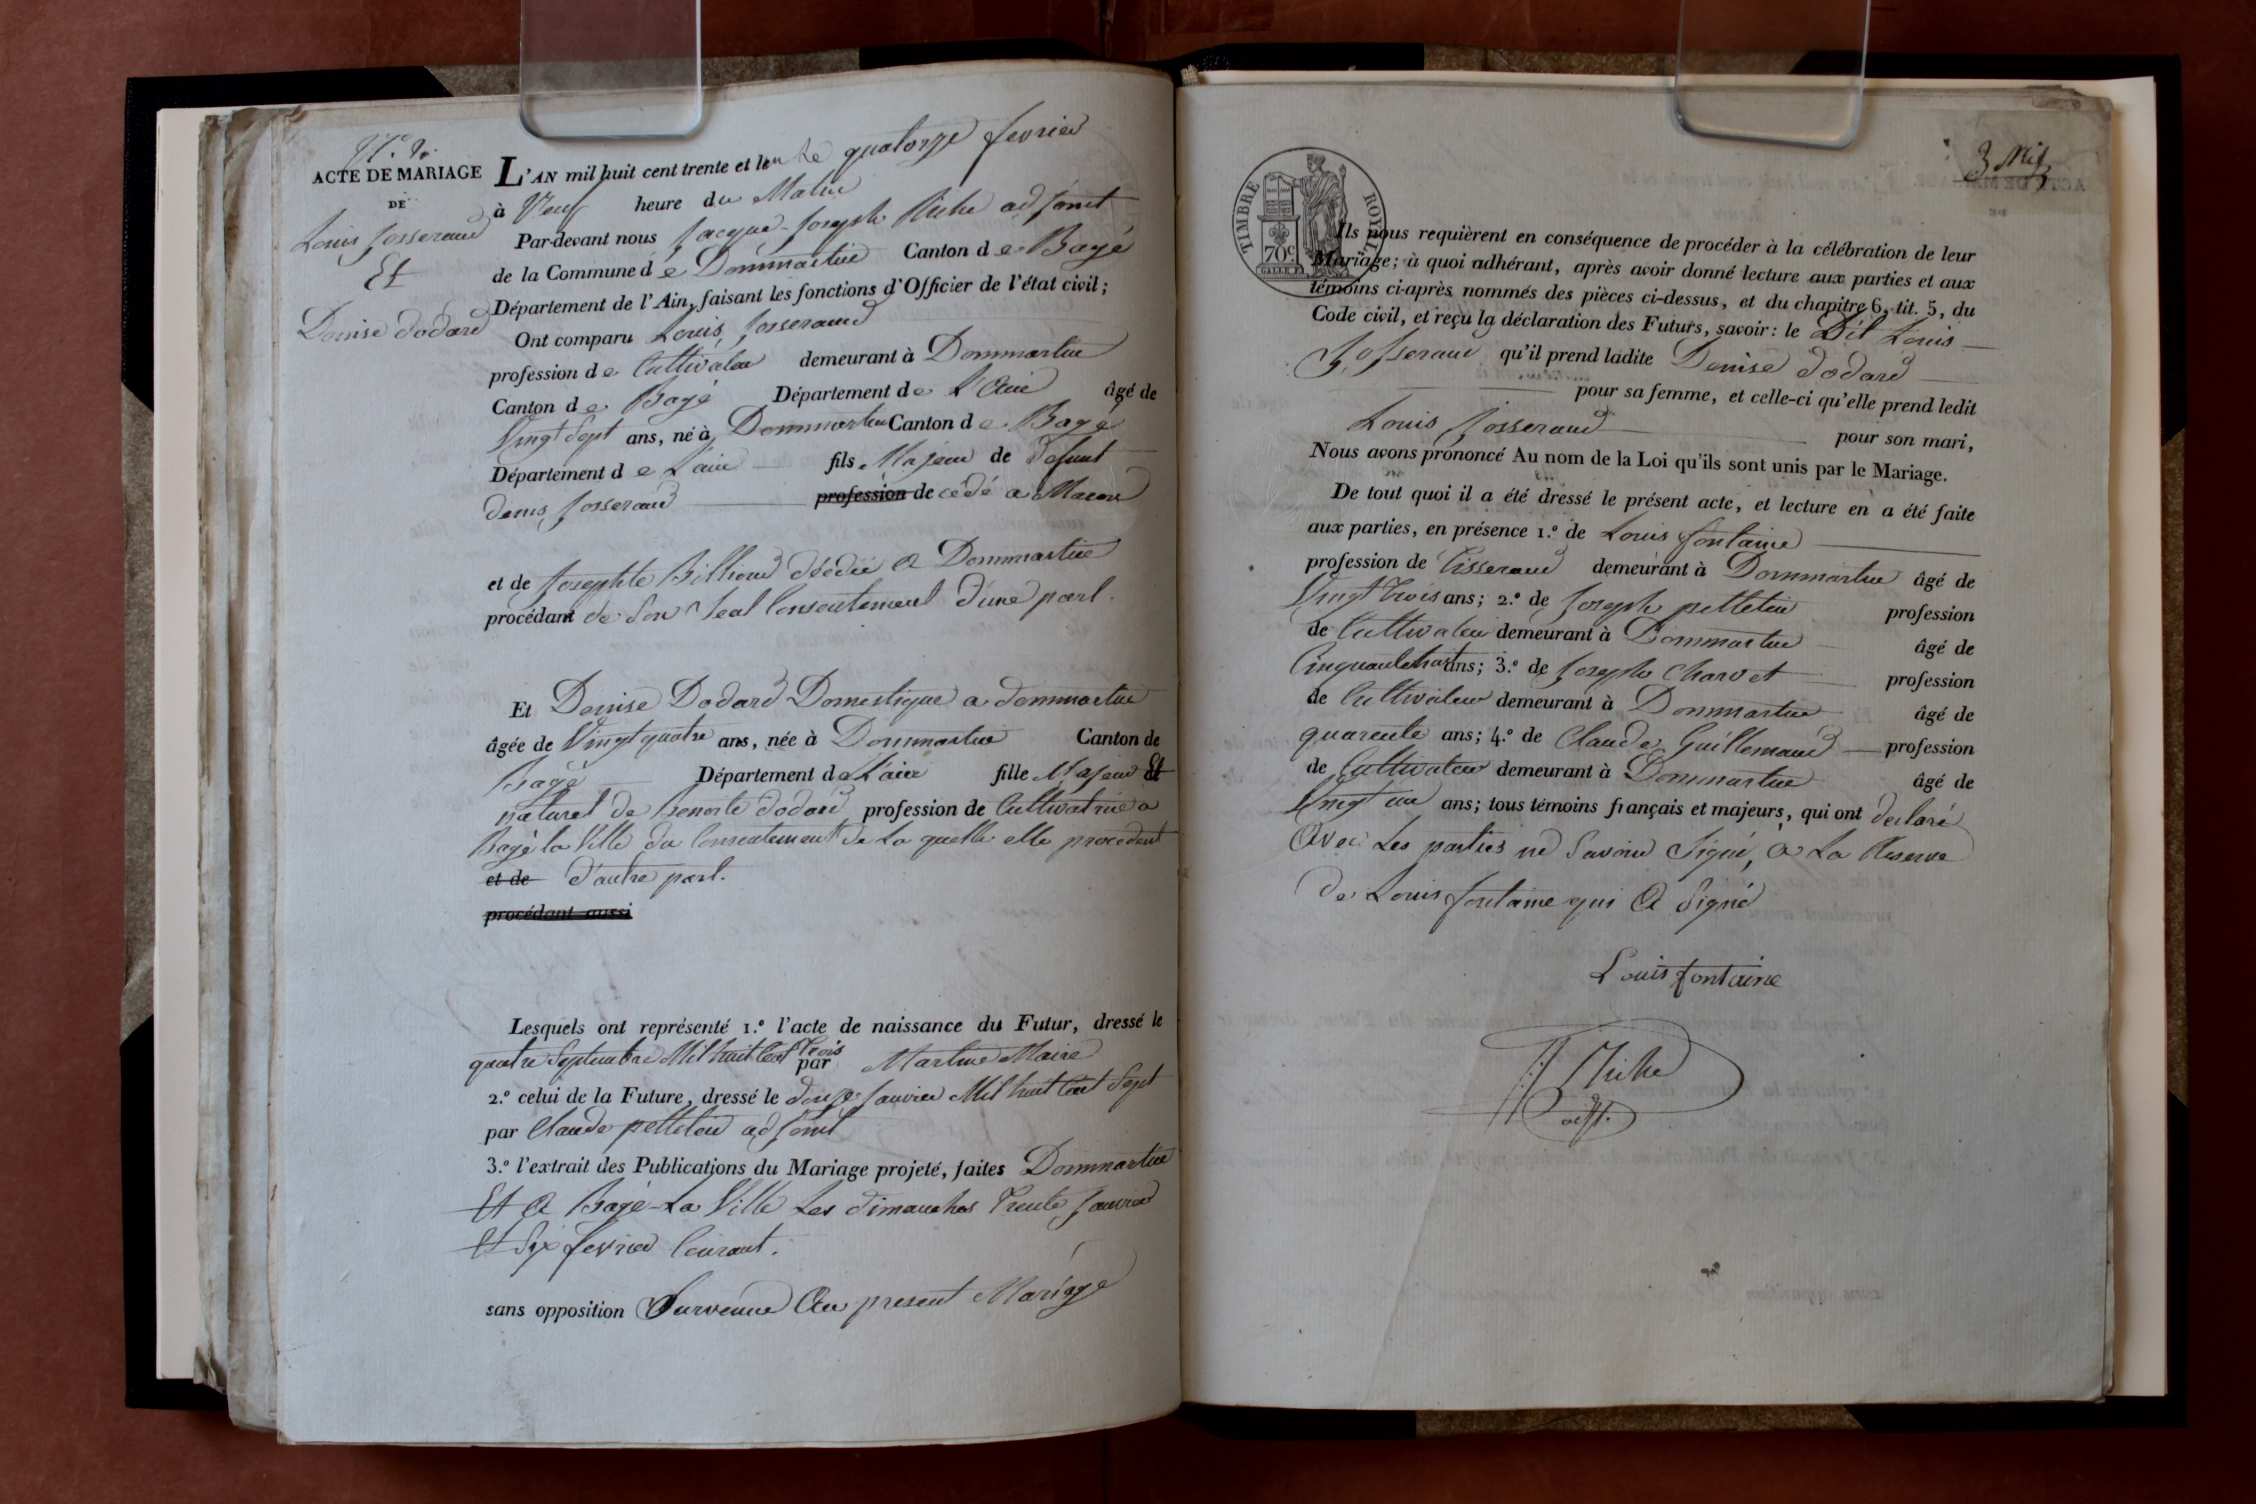 N.° 9.
ACTE DE MARIAGE
DE
Louis Josserand
Et
Denise Dodard
L'AN mil huit cent trente et un le quatorze fevrier
à Neuf heure du Matin
Par-devant nous Jacque-Joseph Riche adjoint
de la Commune de Dommartin Canton de Bagé
Département de l'Ain, faisant les fonctions d'Officier de l'état civil;
Ont comparu Louis Josserand
profession de Cultivateur demeurant à Dommartin
Canton de Bagé Département de L'Ain âgé de
Vingt Sept ans, né à Dommartin Canton de Bagé
Département de L'ain fils Majeur de defunt
denis Josserand profession de cédé a Macon
et de Josephte Billioud décédée a Dommartin
procédant de Son Seal Consentement d'une part.
Et Denise Dodard Domestique a dommartin
âgée de Vingt quatre ans, née à Dommartin Canton de
Bagé Département de L'ain fille Majeur Et
naturel de Benoite dodard profession de Cultivatrice a
Bagé la Ville du Consentement de La quelle elle procedent
et de d'autre part.
procédant aussi
Lesquels ont représenté 1.° l'acte de naissance du Futur, dressé le
quatre Septembre Mil huit Cent Trois par Martin Maire
2.° celui de la Future, dressé le douze Janvier Mil huit Cent Sept
par Claude pelletin adjoint
3.° l'extrait des Publications du Mariage projeté, faites Dommartin
Et A Bagé-La Ville Les dimanches Trente Janvier
Et Six fevrier Courant.
sans opposition Survenue Au present Mariage
3 Mit
TIMBRE ROYAL
70c
Ils nous requièrent en conséquence de procéder à la célébration de leur
Mariage; à quoi adhérant, après avoir donné lecture aux parties et aux
témoins ci-après nommés des pièces ci-dessus, et du chapitre 6, tit. 5, du
Code civil, et reçu la déclaration des Futurs, savoir: le Dit Louis
Josserand qu'il prend ladite Denise Dodard
pour sa femme, et celle-ci qu'elle prend ledit
Louis Josserand pour son mari,
Nous avons prononcé Au nom de la Loi qu'ils sont unis par le Mariage.
De tout quoi il a été dressé le présent acte, et lecture en a été faite
aux parties, en présence 1.° de Louis fontaine
profession de Tisserand demeurant à Dommartin âgé de
Vingt Trois ans; 2.° de Joseph pelletin profession
de Cultivateur demeurant à Dommartin âgé de
Cinquante huit ans; 3.° de Joseph Charvet profession
de Cultivateur demeurant à Dommartin âgé de
quarente ans; 4.° de Claude Guillemaud profession
de Cultivateur demeurant à Dommartin âgé de
Vingt un ans; tous témoins français et majeurs, qui ont declaré
Avec Les parties ne Savoir Signé, a La Reserve
de Louis fontaine qui A Signé
Louis fontaine
Riche
adjt.